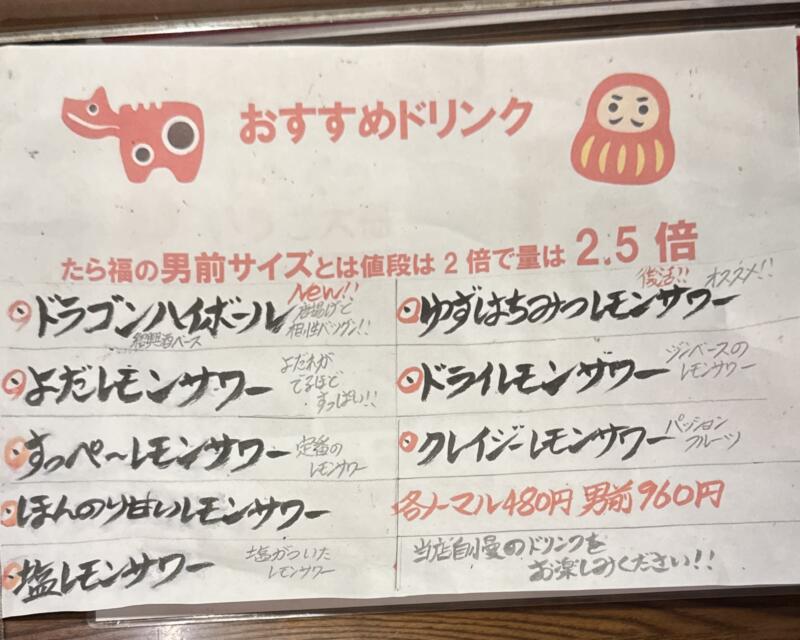 おすすめドリンク
たら福の男前サイズとは値段は2倍で量は2.5倍
ドラゴンハイボール
New!!
唐揚げと
相性バツグン!!
紹興酒ベース
よだレモンサワー
よだれが
でるほど
すっぱい!!
すっぺ〜レモンサワー
定番の
レモンサワー
ほんのり甘いレモンサワー
塩レモンサワー
塩がついた
レモンサワー
復活!!
オススメ!!
ゆずはちみつレモンサワー
ドライレモンサワー
ジンベースの
レモンサワー
クレイジーレモンサワー
パッション
フルーツ
各ノーマル480円 男前960円
当店自慢のドリンクを
お楽しみください!!